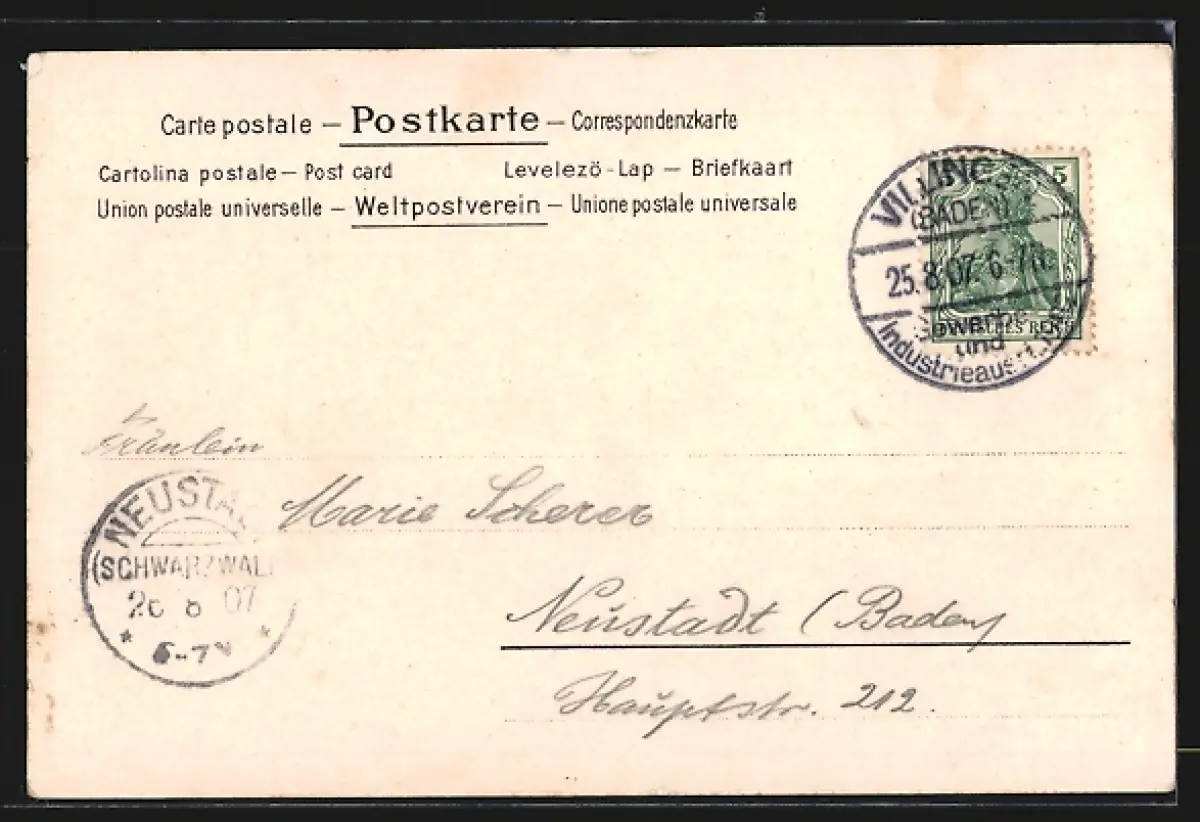 Carte postale – Postkarte – Correspondenzkarte
Cartolina postale – Post card Levelezö-Lap – Briefkaart
Union postale universelle – Weltpostverein – Unione postale universale
VILLING
(BADEN)
5
25.8.07 6-7
und
Industrieaus
Fräulein
Marie Scherer
NEUSTA
(SCHWARZWAL
07
6-7
Neustadt (Baden)
Hauptstr. 212.